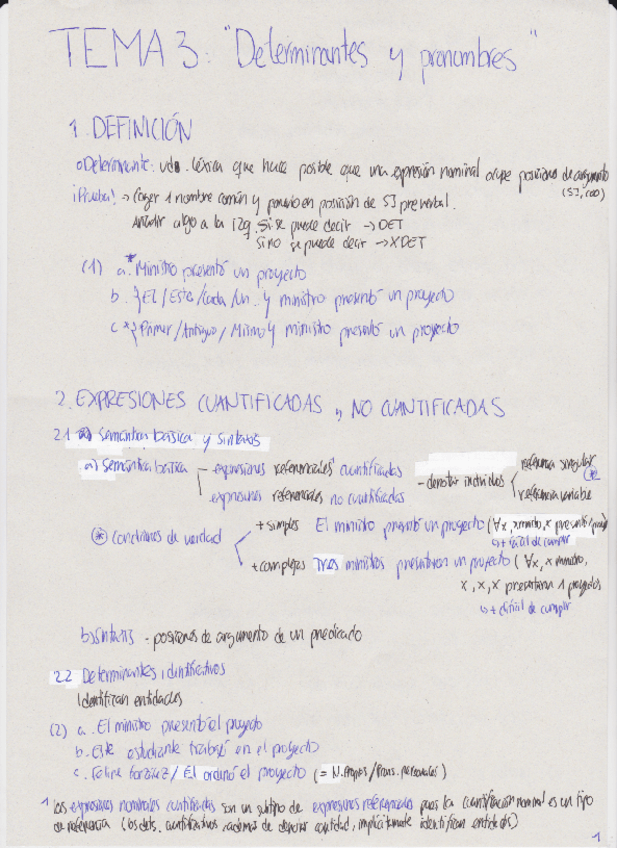 TEMA 3: "Determinantes y pronombres"
1. DEFINICIÓN
o Determinante: uds. léxica que hace posible que una expresión nominal ocupe posiciones de argumento
(SJ, COD)
¡Prueba! → Coger 1 nombre común y ponerlo en posición de SJ preverbal.
Añadir algo a la izq. Si se puede decir → DET
Si no se puede decir → X DET
(1) a. *Ministro presentó un proyecto
b. {El / Este / Cada / Un..} ministro presentó un proyecto
c * {Primer / Antiguo / Mismo} ministro presentó un proyecto
2. EXPRESIONES CUANTIFICADAS y NO CUANTIFICADAS
2.1 Semántica básica y sintaxis
a) Semántica básica - expresiones referenciales¹ cuantificadas
expresiones referenciales no cuantificadas
- denotar individuos
referencia singular
referencia variable
(*) Condiciones de verdad
+ simples El ministro presentó un proyecto (∀x, x ministro, x presentó 1 proyecto)
↳ + fácil de cumplir
+ complejas Tres ministros presentaron un proyecto (∀x, x ministro,
x, x, x presentaron 1 proyectos
↳ + difícil de cumplir
b) Sintaxis - posiciones de argumento de un predicado
2.2 Determinantes identificativos
Identifican entidades
(2) a. El ministro presentó el proyecto
b. Este estudiante trabajó en el proyecto
c. Felipe / Él ordenó el proyecto (= N. Propios / Prons. personales)
1 Las expresiones nominales cuantificadas son un subtipo de expresiones referenciales pues la cuantificación nominal es un tipo
de referencia (los dets. cuantificativos, además de denotar cantidad, implícitamente identifican entidades)
1